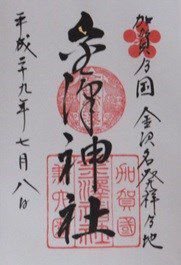 加賀乃国 金沢名発祥乃地
金澤神社
加賀國
平成二十九年七月八日